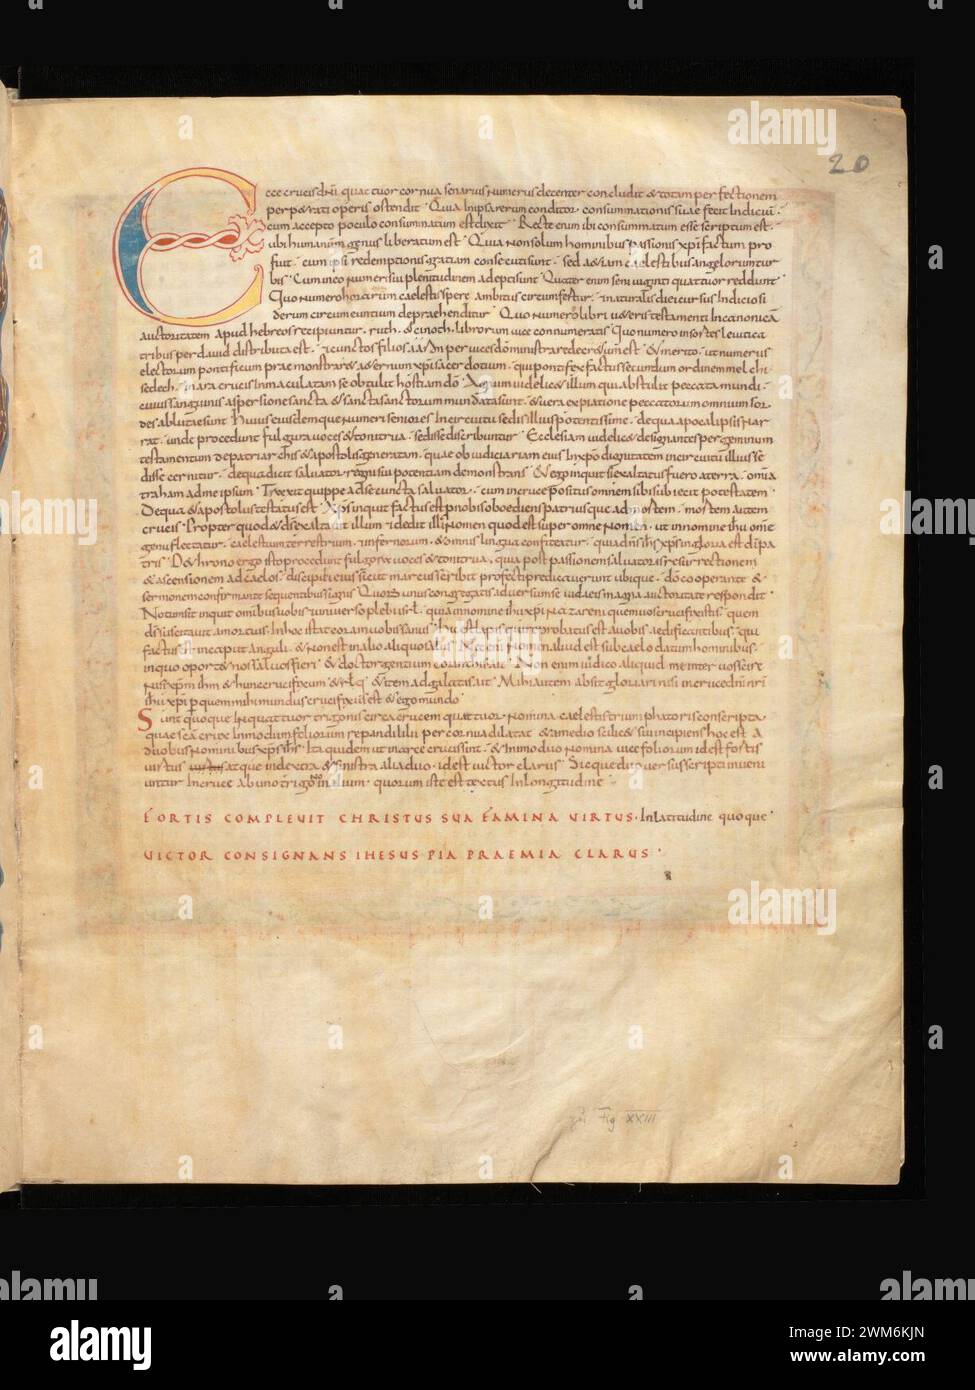 20
Ecce crucis dñi quattuor cornua senarius numerus decenter concludit & totam perfectionem
perp&rati operis ostendit · Quia in ipsa rerum conditor consummationis suae fecit indiciū ·
cum accepto poculo consummatum est dixit · Recte enim ibi consummatum esse scriptum est ·
ubi humanum genus liberatum est · Quia non solum hominibus passionis xpi factum pro
fuit · cum ipsi redemptionis gratiam consecuti sunt · sed &iam caelestibus angelorum tur
bis · Cum in eo numeri sui plenitudinem adepti sunt · Quater enim seni viginti quattuor reddunt
Quo numero horarum caelestis sperę ambitus circumfertur · & naturalis diei cursus indicio si
derum circumeuntium depraehenditur · Quo numero libri u&eris testamenti in canonicā
auctoritatem apud hebreos recipiuntur · ruth · & cinoth · librorum vice connumeratis · Quo numero in sortes leuitica
tribus per dauid distributa est · & cunctos filios aaron per uices dōministrare decr&um est · & merito · ut numerus
electorum pontificum praemonstrar& a&ernum xpm sacerdotum · qui pontifex factus secundum ordinem mel chi ·
sedech · in ara crucis inmaculatam se obtulit hostiam dō · Agnum uidelic& illum qui abstulit peccata mundi ·
cuius sanguinis aspersione sancta & sancta sanctorum mundata sunt · & uera expiatione peccatorum omnium sor
des ablutae sunt · Huius eiusdemque numeri seniores in circuitu sedis illius potentissime · de qua apocalipsis nar
rat · unde procedunt fulgura uoces & tonitrua · sedisse discribuntur · Ecclesiam uidelic& designantes per geminum
testamentum de patriarchis & apostolis generatam · quae ob iudiciariam eius in xpō dignitatem in circuitu illius se
disse cernitur · de qua dicit saluator · regni sui potentiam demonstrans · & ego inquit si exaltatus fuero a terra · omia
traham ad me ipsum · Traxit quippe ad se cuncta saluator · cum in cruce positus omnem sibi subiecit potestatem ·
De qua & apostolus testatus est · Xps inquit factus est p nobis oboediens patri usque ad mortem · mortem autem
crucis · Propter quod & ds exaltauit illum · & dedit illi nomen quod est super omne nomen · ut in nomine ihu omne
genu flectatur · caelestium terrestrium · & infernorum · & omnis lingua confiteatur · quia dns ihs xps in gloria est di pa
tris · De throno ergo isto procedunt fulgora uoces & tonitrua · quia post passionem saluatoris resurrectionem
& ascensionem ad caelos · discipuli eius sicut marcus scribit profecti predicauerunt ubique · dō cooperante &
sermonem confirmante sequentibus signis · Quorum unus congregatis aduersum se iudaeis magna auctoritate respondit ·
Notum sit inquit omnibus uobis & uniuerso plebi isrl · quia in nomine ihu xpi nazareni quem uos crucifixistis · quem
ds suscitauit a mortuis · In hoc iste stat coram uobis sanus · hic est lapis qui reprobatus est a uobis aedificantibus · qui
factus est in caput anguli · & non est in alio aliquo salus · Nec enim nomen aliud est sub caelo datum hominibus ·
in quo oporte& nos saluos fieri · & doctor gentium Non enim iudico aliquid me inter uos scire
nisi xpm ihm & hunc crucifixum & rlq & item ad galatas ait · Mihi autem absit gloriari nisi in cruce dni nri
ihu xpi · p quem mihi mundus crucifixus est & ego mundo ·
Sunt quoque in quattuor trigonis circa crucem quattuor · nomina caelestis triumphatoris conscripta ·
quae sca cruce in modum foliorum repandi lilii per cornua dilatat · & a medio scilic& suū incipiens hoc est a
duobus nominibus xps ihs · Ita quidem ut in arce crucis sint · & in modo duo nomina uice foliorum id est fortis
uirtus atque in dextra & sinistra alia duo · id est uictor clarus · Sicque duo uersus scripti inueni
untur in cruce ab uno trigono in alium · quorum iste est textus in longitudine
FORTIS COMPLEVIT CHRISTUS SUA FAMINA VIRTUS · In latitudine quoque ·
VICTOR CONSIGNANS IHESUS PIA PRAEMIA CLARUS ·
Fig XXIII
alamy
Image ID: 2WM6KJN
www.alamy.com